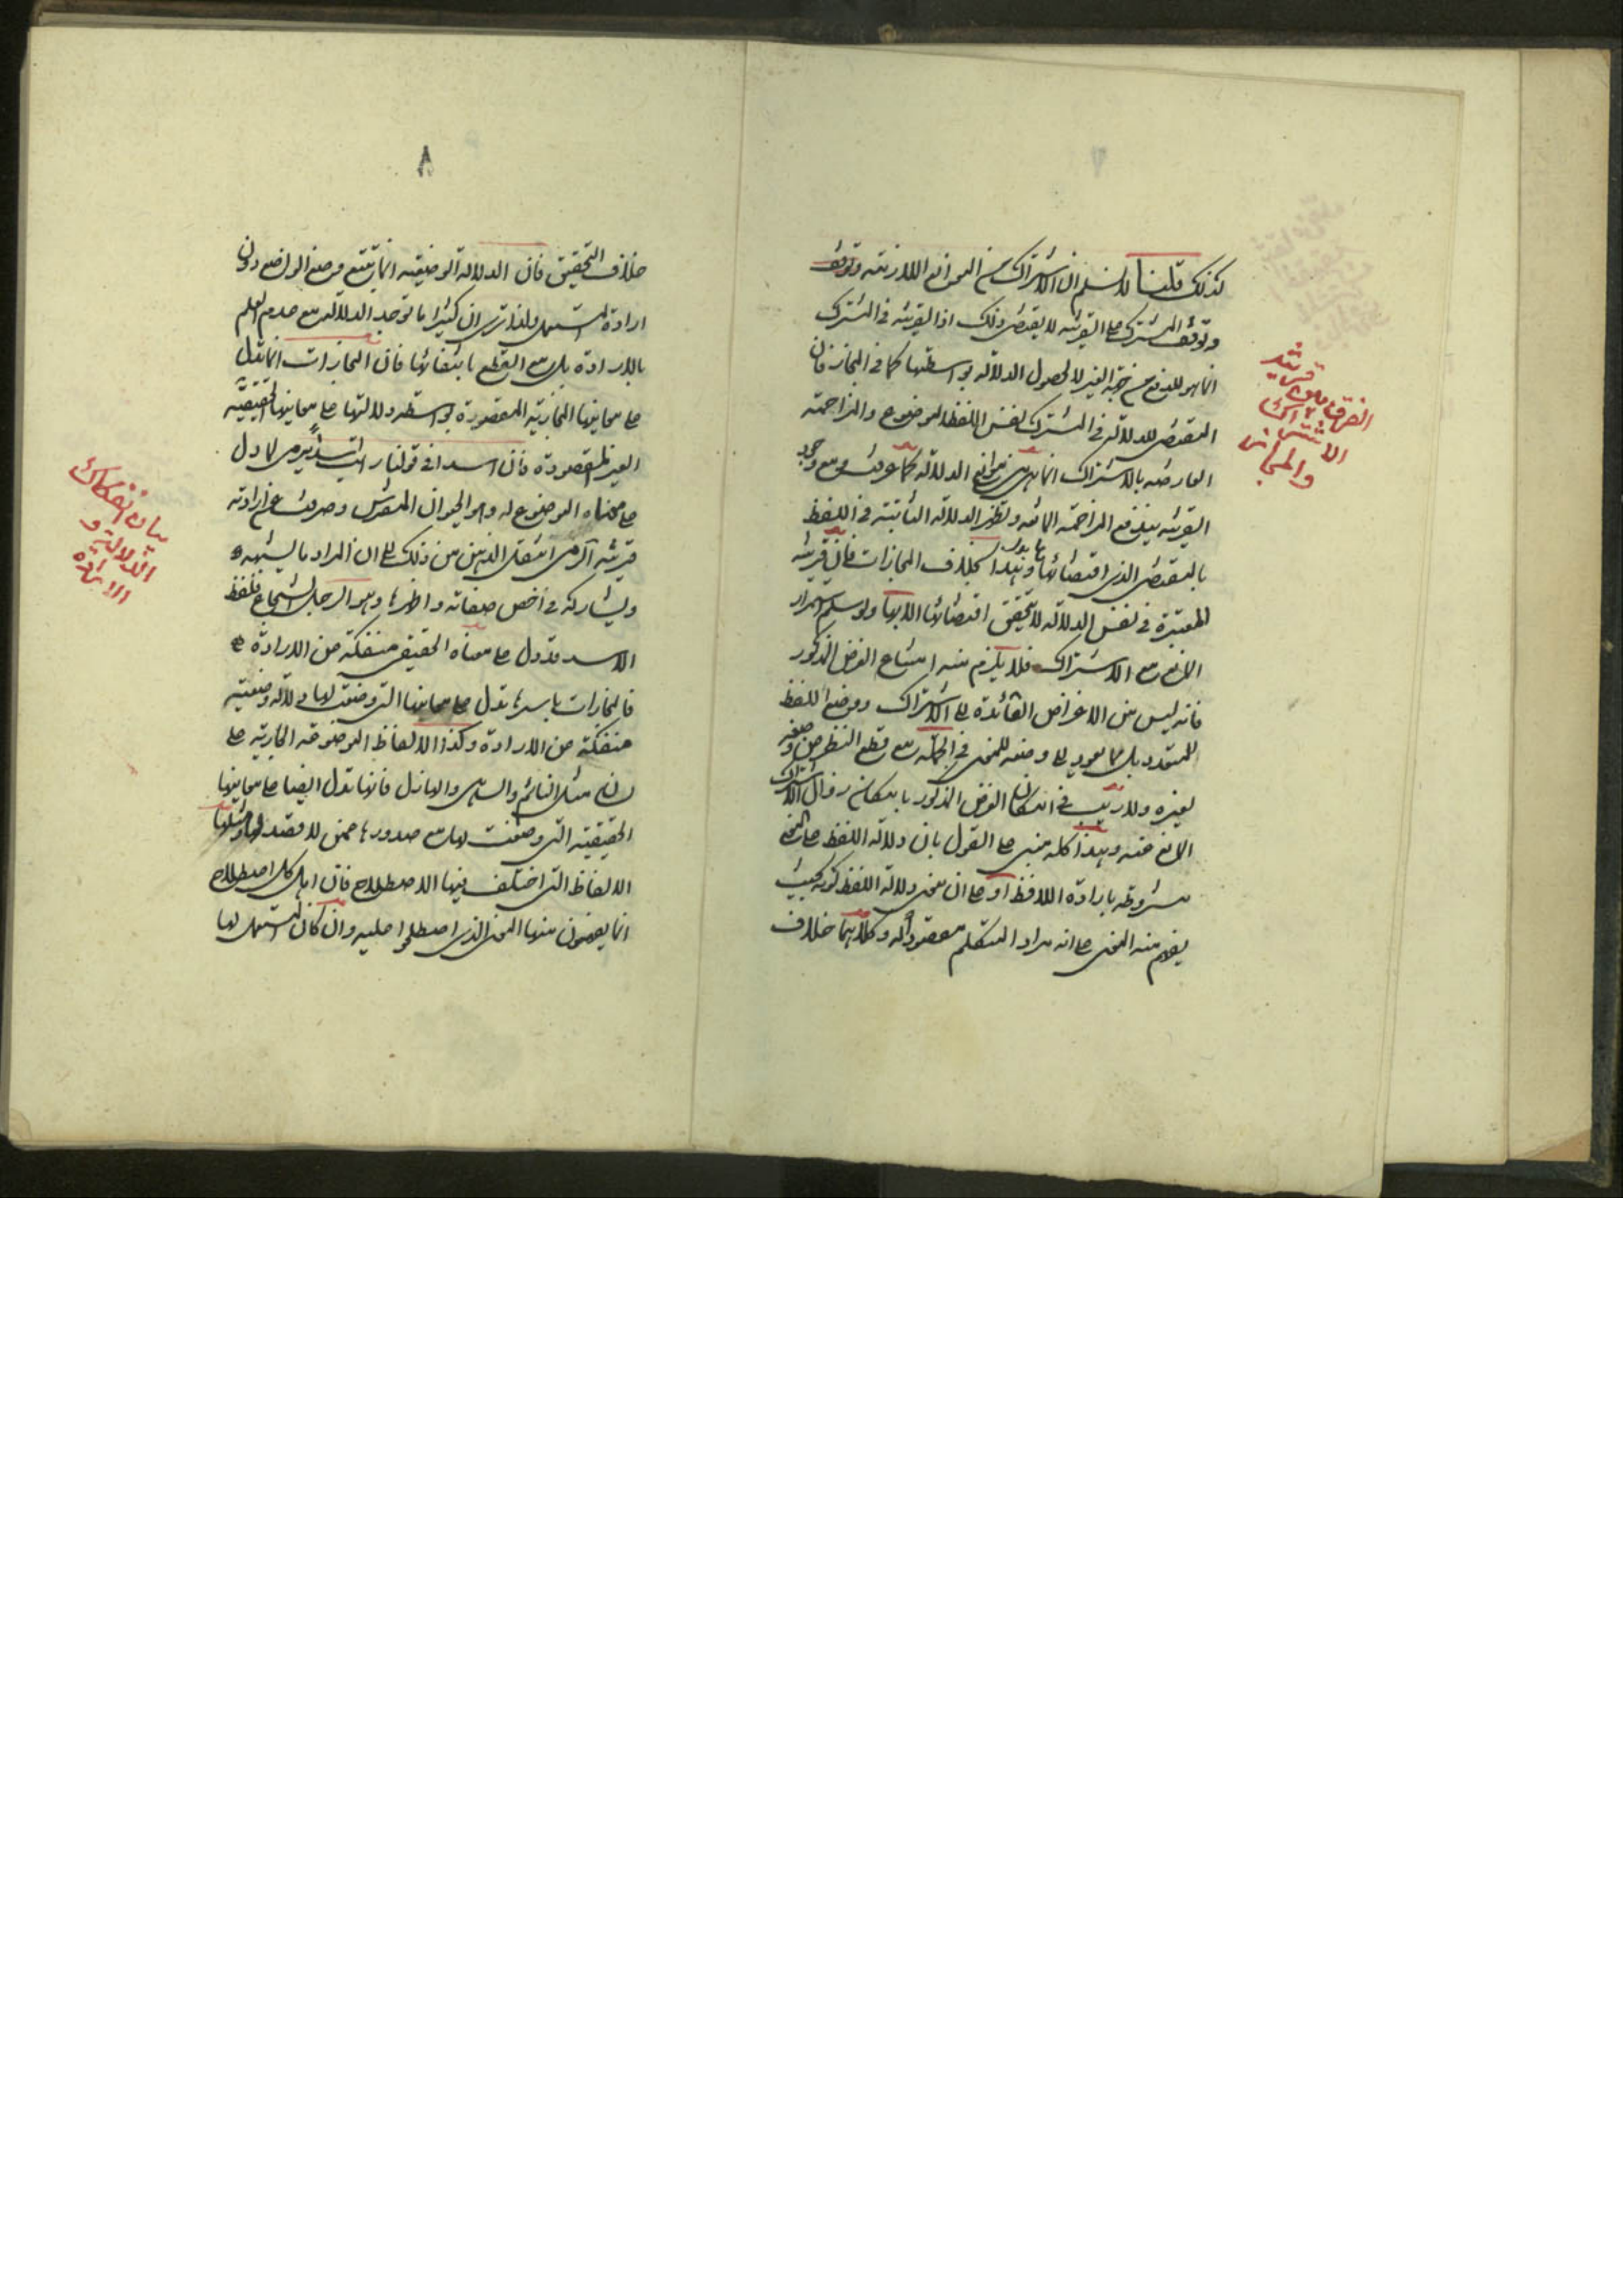 كذلك قلنا لا نسلم ان الاشتراك من الموانع اللازمة وتوقف
وتوقف المشترك على القرينة لا يقتضى ذلك اذ القرينة فى المشترك
انما هو للدفع مزاحمة الغير لا لحصول الدلالة بواسطتها كما فى المجاز فان
المقتضى للدلالة فى المشترك نفس اللفظ الموضوع والمزاحمة
العارضة بالاشتراك انما هى من موانع الدلالة كما عرفت ومع وجود
القرينة يندفع المزاحمة المانعة وتظهر الدلالة الثابتة فى اللفظ
بالمقتضى الذى اقتضائها وهذا بخلاف المجازات فان قرينة
المعتبرة فى نفس الدلالة لا يتحقق اقتضائها الا بها ولو سلم استمرار
المانع مع الاشتراك فلا يلزم منه امتناع الغرض المذكور
فانه ليس من الاغراض العائدة الى الاشتراك ووضع اللفظ
للمتعدد بل مما يعود الى وضعه للمعنى فى الجملة مع قطع النظر عن وضعه
لغيره ولا ريب فى امكان الغرض المذكور بامكان زوال الاشتراك
المانع عنه وهذا كله مبنى على القول بان دلالة اللفظ على المعنى
مشروطة بارادة اللافظ او على ان معنى دلالة اللفظ كونه بحيث
يفهم منه المعنى على انه مراد المتكلم مقصود له وكلاهما خلاف
الفرق بين قرينة
الاشتراك
والمجاز
٨
خلاف التحقيق فان الدلالة الوضعية انما تتبع وضع الواضع دون
ارادة المستعمل ولذا ترى ان كثيرا ما توجد الدلالة مع عدم العلم
بالارادة بل مع القطع بانتفائها فان المجازات انما تدل
على معانيها المجازية المقصورة بواسطة دلالتها على معانيها الحقيقية
الغير المقصودة فان اسدا فى قولنا رايت اسدا يرمى لما دل
على معناه الموضوع له وهو الحيوان المفترس وصرفت عن ارادته
قرينة الرمى انتقل الذهن من ذلك الى ان المراد ما يشبهه
ويشاركه فى اخص صفاته واظهرها وهو الرجل الشجاع فلفظ
الاسد قد دل على معناه الحقيقى منفكة عن الارادة
فالمجازات باسرها تدل على معانيها التى وضعت لها دلالة وضعية
منفكة عن الارادة وكذا الالفاظ الموضوعة الجارية على
لسان مثل النائم والساهى والهازل فانها تدل ايضا على معانيها
الحقيقية التى وضعت لها مع صدورها عمن لا قصد له ومثلها
الالفاظ التى اختلف فيها الاصطلاح فان اهل كل اصطلاح
انما يفهمون منها المعنى الذى اصطلحوا عليه وان كان المستعمل لها
بيان انفكاك
الدلالة و
الارادة